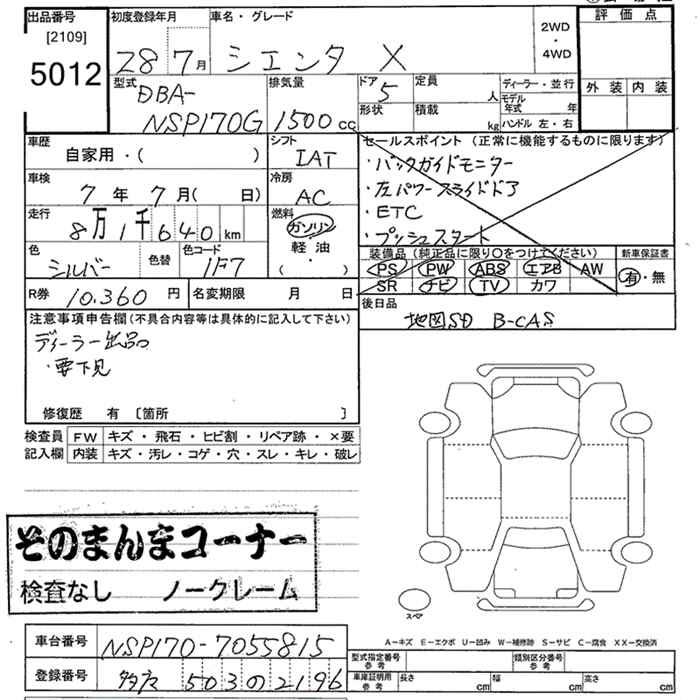 出品番号 初度登録年月 車名・グレード 2WD・4WD 評価点
[2109]
5012
28 7月 シエンタ X
型式 排気量 ドア 定員 人 ディーラー・並行 外装 内装
DBA-NSP170G 1500cc 5
形状 積載 kg モデル年式 年
ハンドル 左・右
車歴 シフト セールスポイント(正常に機能するものに限ります)
自家用・( ) IAT
・バックガイドモニター
車検 冷房
7年 7月( 日) AC
・左パワースライドドア
走行 燃料
8万1千640km ガソリン
・ETC
軽油
・プッシュスタート
( ・ )
色 色替 色コード
シルバー 1F7
装備品(純正品に限り〇をつけてください) 新車保証書
PS PW ABS エアB AW 有・無
SR ナビ TV カワ
R券 10.360円 名変期限 月 日
後日品
地図SD B-CAS
注意事項申告欄(不具合内容等は具体的に記入して下さい)
ディーラー出品
・要下見
修復歴 有 [箇所 ]
検査員 FW キズ・飛石・ヒビ割・リペア跡・×要
記入欄 内装 キズ・汚レ・コゲ・穴・スレ・キレ・破レ
そのまんまコーナー
検査なし ノークレーム
スペア
A-キズ E-エクボ U-凹み W-補修跡 S-サビ C-腐食 XX-交換済
車台番号 NSP170-7055815
型式指定番号 参考 類別区分番号 参考
登録番号 503の2196
車庫証明用 参考 長さ cm 幅 cm 高さ cm